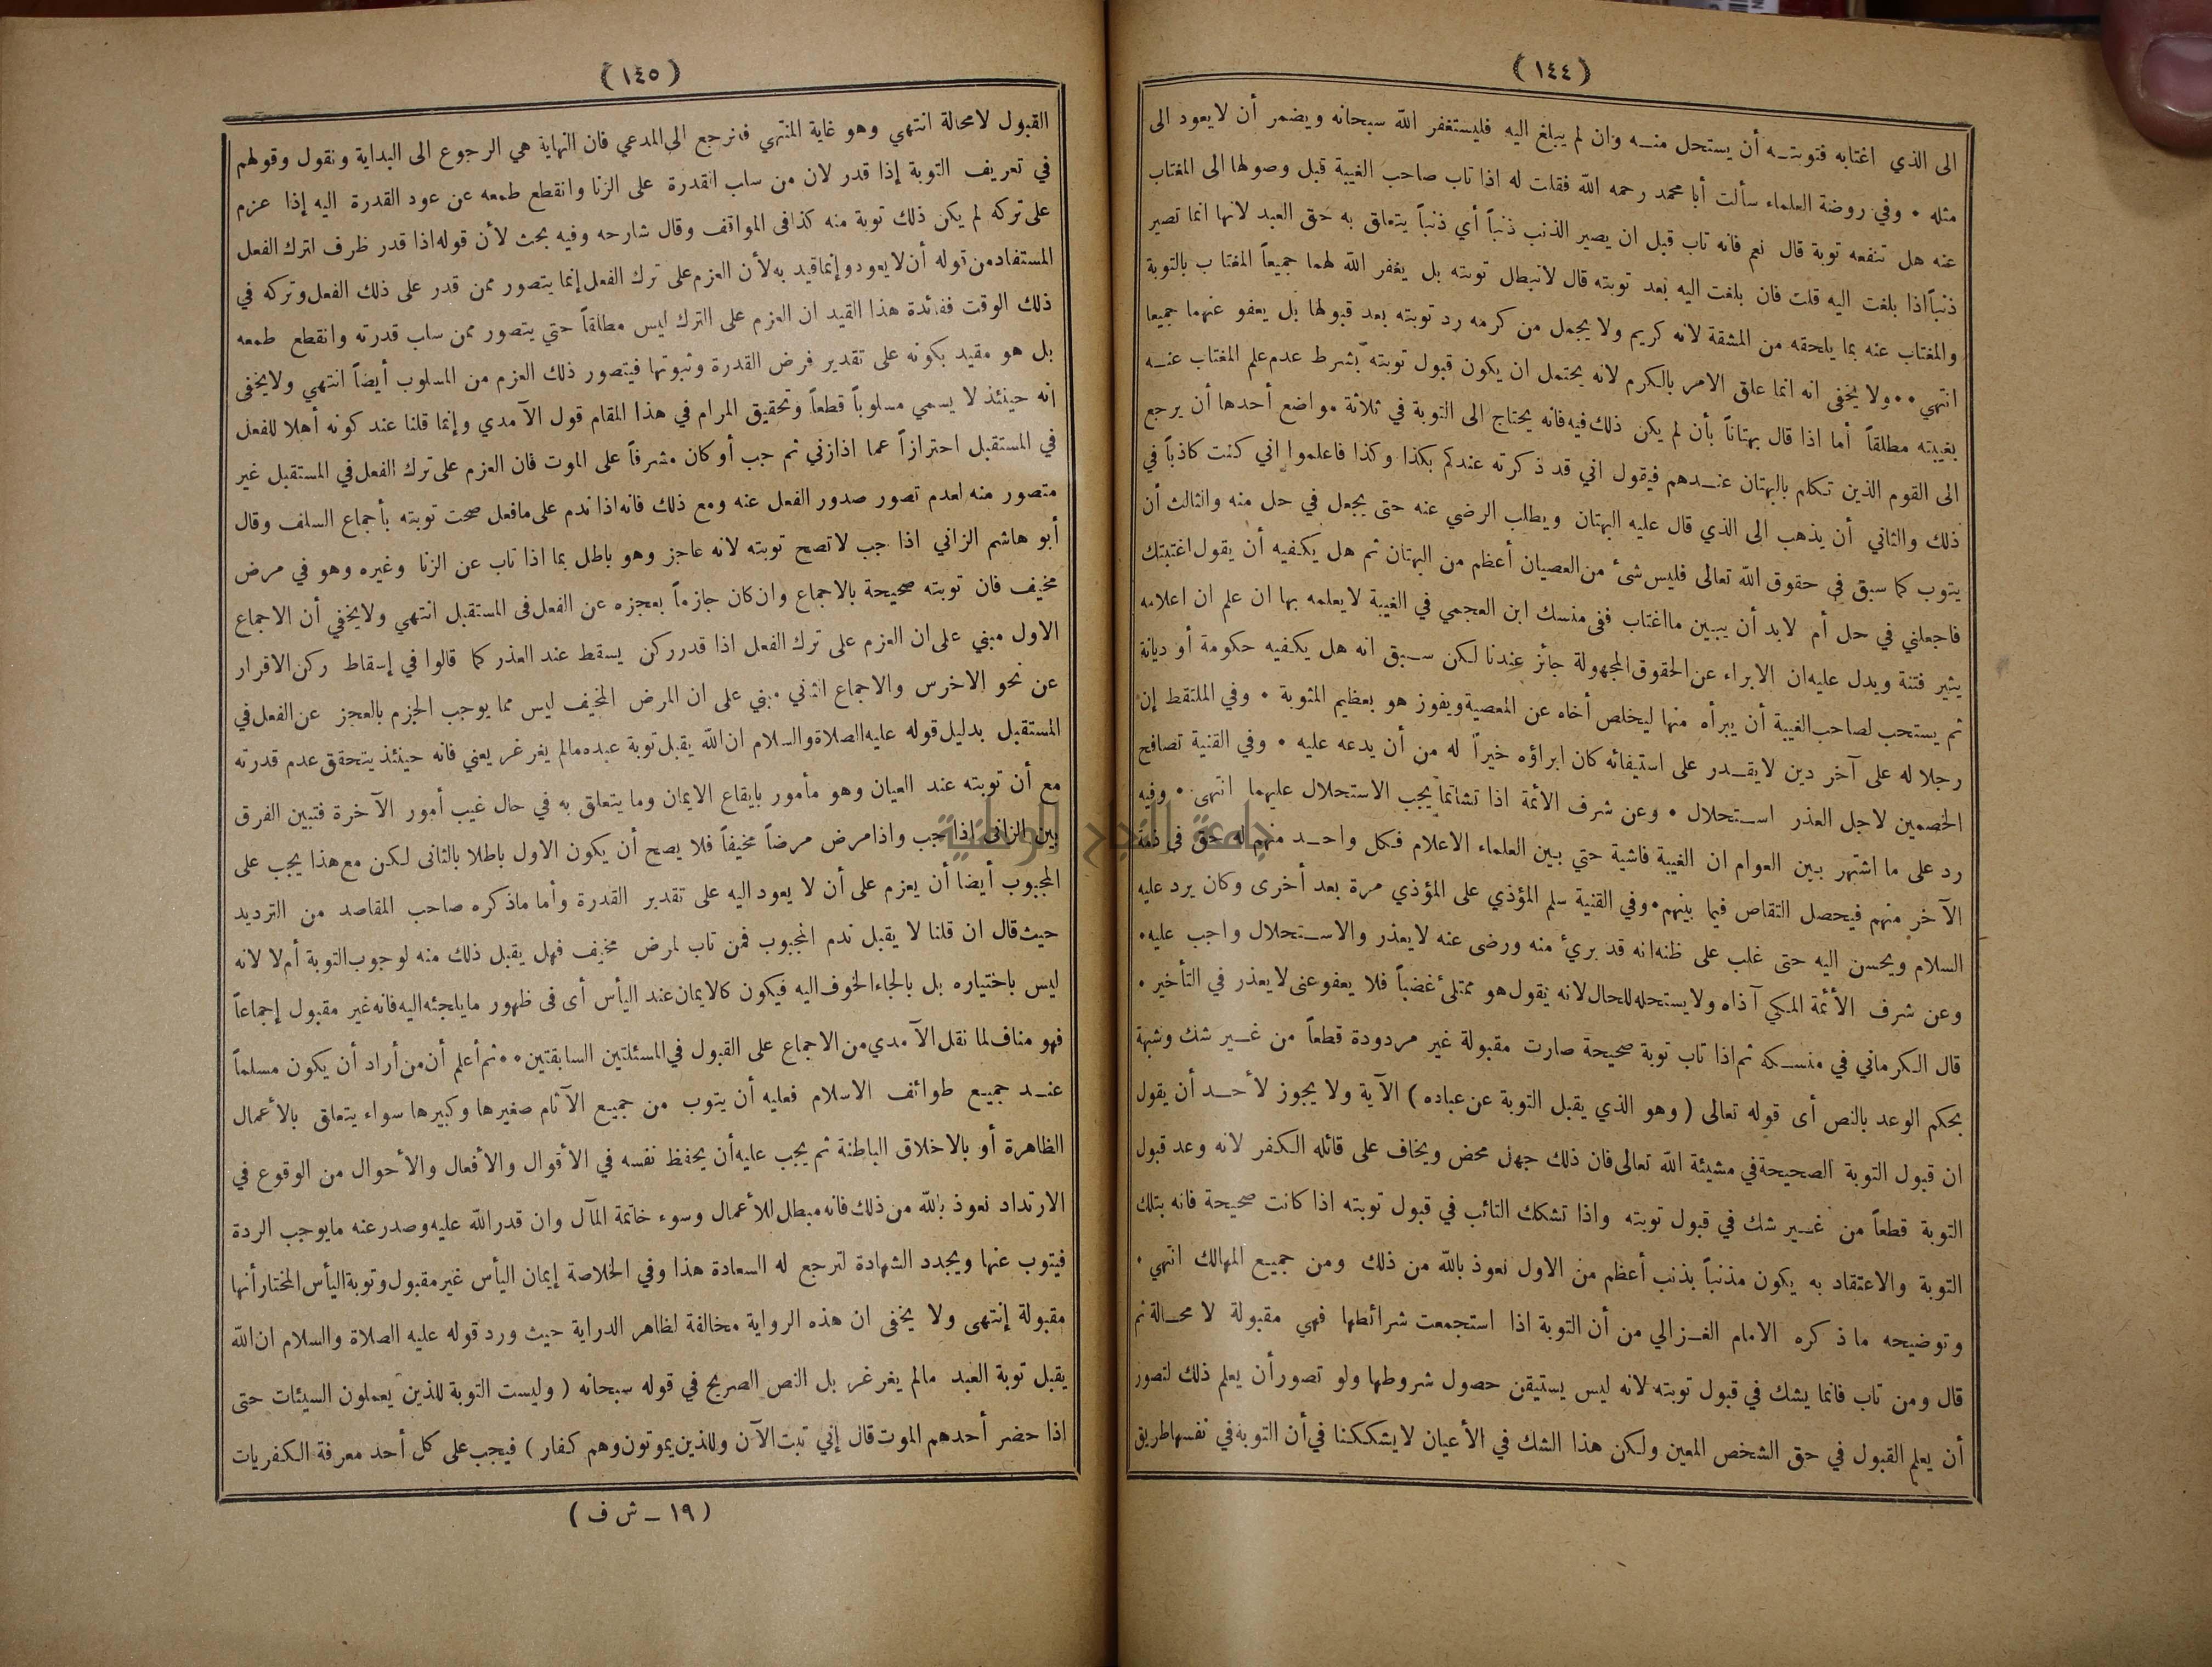 ( ١٤٤ )
الى الذي اغتابه فتوبته أن يستحل منه وان لم يبلغ اليه فليستغفر الله سبحانه ويضمر أن لايعود الى
مثله • وفي روضة العلماء سألت أبا محمد رحمه الله فقلت له اذا تاب صاحب الغيبة قبل وصولها الى المغتاب
عنه هل تنفعه توبة قال نعم فانه تاب قبل ان يصير الذنب ذنباً أي ذنباً يتعلق به حق العبد لانها انما تصير
ذنباً اذا بلغت اليه قلت فان بلغت اليه بعد توبته قال لاتبطل توبته بل يغفر الله لهما جميعاً المغتاب بالتوبة
والمغتاب عنه بما يلحقه من المشقة لانه كريم ولا يجمل من كرمه رد توبته بعد قبولها بل يعفو عنهما جميعا
انتهي •• ولا يخفى انه انما علق الامر بالكرم لانه يحتمل ان يكون قبول توبته بشرط عدم علم المغتاب عنه
بغيبته مطلقاً أما اذا قال بهتاناً بأن لم يكن ذلك فيه فانه يحتاج الى التوبة في ثلاثة مواضع أحدها أن يرجع
الى القوم الذين تكلم بالبهتان عندهم فيقول اني قد ذكرته عندكم بكذا وكذا فاعلموا اني كنت كاذباً في
ذلك والثاني أن يذهب الى الذي قال عليه البهتان ويطلب الرضي عنه حتى يجعل في حل منه والثالث أن
يتوب كما سبق في حقوق الله تعالى فليس شئ من العصيان أعظم من البهتان ثم هل يكفيه أن يقول اغتبتك
فاجعلني في حل أم لابد أن يبين مااغتاب ففى منسك ابن العجمي في الغيبة لايعلمه بها ان علم ان اعلامه
يثير فتنة ويدل عليه ان الابراء عن الحقوق المجهولة جائز عندنا لكن سبق انه هل يكفيه حكومة أو ديانة
ثم يستحب لصاحب الغيبة أن يبرأه منها ليخلص أخاه عن المعصية ويفوز هو بعظيم المثوبة • وفي الملتقط إن
رجلا له على آخر دين لايقدر على استيفائه كان ابراؤه خيراً له من أن يدعه عليه • وفي القنية تصافح
الخصمين لاجل العذر استحلال • وعن شرف الأئمة اذا تشاتما يجب الاستحلال عليهما انتهى • وفيه
رد على ما اشتهر بين العوام ان الغيبة فاشية حتي بين العلماء الاعلام فكل واحد منهم له حق فى ذمة
الآخر منهم فيحصل التقاص فيما بينهم • وفي القنية سلم المؤذي على المؤذي مرة بعد أخرى وكان يرد عليه
السلام ويحسن اليه حتى غلب على ظنه انه قد برئ منه ورضى عنه لايعذر والاستحلال واجب عليه •
وعن شرف الأئمة المكي آذاه ولا يستحله للحال لانه يقول هو ممتلئ غضباً فلا يعفو عنى لايعذر في التأخير •
قال الكرماني في منسكه ثم اذا تاب توبة صحيحة صارت مقبولة غير مردودة قطعاً من غير شك وشبهة
بحكم الوعد بالنص أى قوله تعالى ( وهو الذي يقبل التوبة عن عباده ) الآية ولا يجوز لأحد أن يقول
ان قبول التوبة الصحيحة في مشيئة الله تعالى فان ذلك جهل محض ويخاف على قائله الكفر لانه وعد قبول
التوبة قطعاً من غير شك في قبول توبته واذا تشكك التائب في قبول توبته اذا كانت صحيحة فانه بتلك
التوبة والاعتقاد به يكون مذنباً بذنب أعظم من الاول نعوذ بالله من ذلك ومن جميع المهالك انتهي •
وتوضيحه ما ذكره الامام الغزالي من أن التوبة اذا استجمعت شرائطها فهي مقبولة لا محالة ثم
قال ومن تاب فانما يشك في قبول توبته لانه ليس يستيقن حصول شروطها ولو تصور أن يعلم ذلك لتصور
أن يعلم القبول في حق الشخص المعين ولكن هذا الشك في الأعيان لايشككنا في أن التوبة في نفسها طريق
( ١٤٥ )
القبول لامحالة انتهي وهو غاية المنتهي فنرجع الى المدعي فان النهاية هي الرجوع الى البداية ونقول وقولهم
في تعريف التوبة إذا قدر لان من سلب القدرة على الزنا وانقطع طمعه عن عود القدرة اليه إذا عزم
على تركه لم يكن ذلك توبة منه كذا فى المواقف وقال شارحه وفيه بحث لأن قوله اذا قدر ظرف لترك الفعل
المستفاد من قوله أن لا يعود وإنما قيد به لأن العزم على ترك الفعل إنما يتصور ممن قدر على ذلك الفعل وتركه في
ذلك الوقت ففائدة هذا القيد ان العزم على الترك ليس مطلقاً حتي يتصور ممن سلب قدرته وانقطع طمعه
بل هو مقيد بكونه على تقدير فرض القدرة وثبوتها فيتصور ذلك العزم من المسلوب أيضاً انتهي ولا يخفى
انه حينئذ لا يسمي مسلوباً قطعاً وتحقيق المرام في هذا المقام قول الآمدي وإنما قلنا عند كونه أهلا للفعل
في المستقبل احترازاً عما اذا زني ثم جب أو كان مشرفاً على الموت فان العزم على ترك الفعل في المستقبل غير
متصور منه لعدم تصور صدور الفعل عنه ومع ذلك فانه اذا ندم على مافعل صحت توبته بأجماع السلف وقال
أبو هاشم الزاني اذا جب لاتصح توبته لانه عاجز وهو باطل بما اذا تاب عن الزنا وغيره وهو في مرض
مخيف فان توبته صحيحة بالاجماع وان كان جازماً بعجزه عن الفعل فى المستقبل انتهي ولا يخفي أن الاجماع
الاول مبني على ان العزم على ترك الفعل اذا قدر ركن يسقط عند العذر كما قالوا في إسقاط ركن الاقرار
عن نحو الاخرس والاجماع الثاني مبني على ان المرض المخيف ليس مما يوجب الجزم بالعجز عن الفعل في
المستقبل بدليل قوله عليه الصلاة والسلام ان الله يقبل توبة عبده مالم يغرغر يعني فانه حينئذ يتحقق عدم قدرته
مع أن توبته عند العيان وهو مأمور بايقاع الايمان وما يتعلق به في حال غيب أمور الآخرة فتبين الفرق
بين الزانى اذا جب واذا مرض مرضاً مخيفاً فلا يصح أن يكون الاول باطلا بالثانى لكن مع هذا يجب على
المجبوب أيضا أن يعزم على أن لا يعود اليه على تقدير القدرة وأما ماذكره صاحب المقاصد من الترديد
حيث قال ان قلنا لا يقبل ندم المجبوب فمن تاب لمرض مخيف فهل يقبل ذلك منه لوجوب التوبة أم لا لانه
ليس باختياره بل بالجاء الخوف اليه فيكون كالايمان عند اليأس أى فى ظهور مايلجئه اليه فانه غير مقبول إجماعاً
فهو مناف لما نقل الآمدي من الاجماع على القبول في المسئلتين السابقتين •• ثم أعلم أن من أراد أن يكون مسلماً
عند جميع طوائف الاسلام فعليه أن يتوب من جميع الآثام صغيرها وكبيرها سواء يتعلق بالأعمال
الظاهرة أو بالاخلاق الباطنة ثم يجب عليه أن يحفظ نفسه في الأقوال والأفعال والأحوال من الوقوع في
الارتداد نعوذ بالله من ذلك فانه مبطل للأعمال وسوء خاتمة المآل وان قدر الله عليه وصدر عنه مايوجب الردة
فيتوب عنها ويجدد الشهادة لترجع له السعادة هذا وفي الخلاصة إيمان اليأس غير مقبول وتوبة اليأس المختار أنها
مقبولة إنتهى ولا يخفى ان هذه الرواية مخالفة لظاهر الدراية حيث ورد قوله عليه الصلاة والسلام ان الله
يقبل توبة العبد مالم يغرغر بل النص الصريح في قوله سبحانه ( وليست التوبة للذين يعملون السيئات حتى
اذا حضر أحدهم الموت قال إني تبت الآن ولا الذين يموتون وهم كفار ) فيجب على كل أحد معرفة الكفريات
( ١٩ ــ ش ف )
جامعة النجاح الوطنية